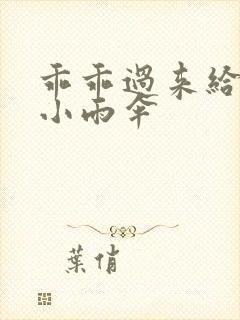 乖乖過来給
小雨伞
葉俏